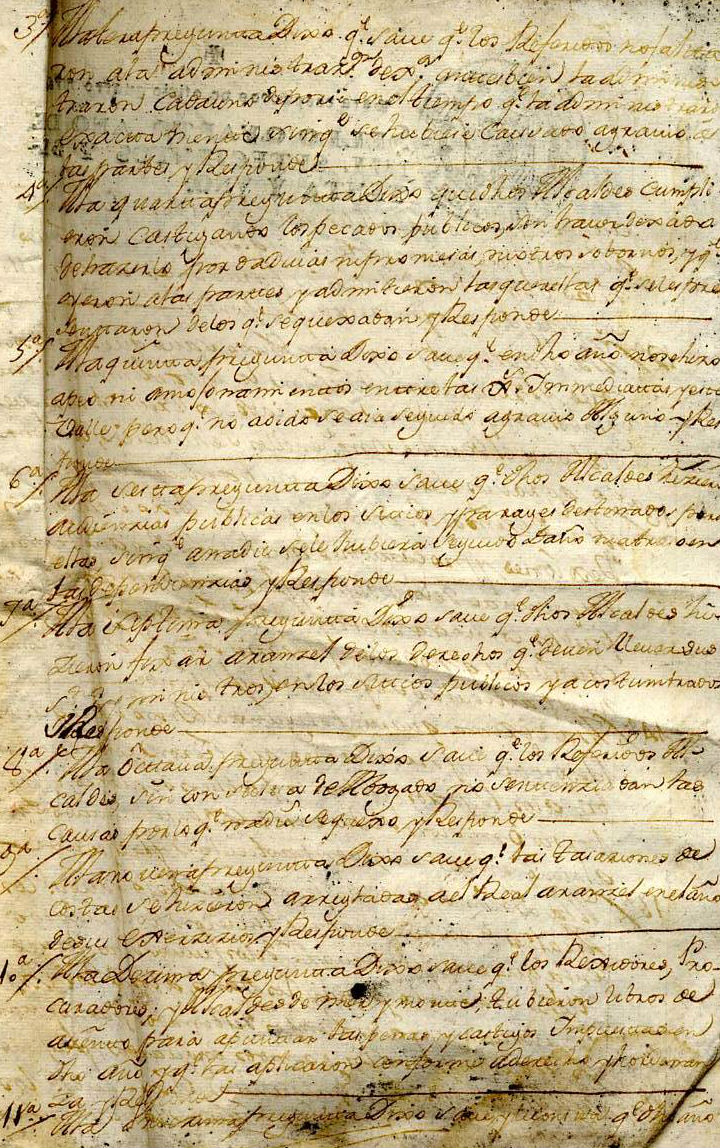 3ª/. A la terzera pregunta Dixo q.e saue q.e los Referidos no faltaron
a la administraz.on de x.a antes bien la adminis
traron cada uno de por si en el tiempo q.e la administraron
exactamente sin q.e se hubiese causado agrauio a
las partes y Responde
4ª/. A la quarta pregunta Dixo que dhos Alcaldes cumpli
eron castigando los pecados publicos, sin hauer dexado
de hazerlo por dadiuas ni promesas ni otros sobornos, y q.e
oyeron a las partes y admitieron las querellas q.e se les pre
sentaron de los q.e se quexaban y Responde
5ª/. A la quinta pregunta Dixo saue q.e en dho año no se hizo
apeo ni amojonamientos entre las Immediatas y este
Valle pero q.e no a oido se aia seguido agrauio Alguno y Res
ponde
6ª/. A la sesta pregunta Dixo saue q.e dhos Alcaldes hizieron
audienzias publicas en los sitios y parajes destinados para
ellas, sin q.e a nadie se le hubiera seguido daño ni atraso en
las dependienzias, y Responde
7ª/. A la septima pregunta Dixo saue q.e dhos Alcaldes hi
zieron fixar aranzel de los derechos q.e deuen lleuar sus
ministros, en los sitios publicos y acostumbrados
y Responde
8ª/. A la Octaua pregunta Dixo saue q.e los Referidos Al
caldes, sin consulta de Abogado no sentenziaban las
causas por lo q.e nadie se quexo, y Responde
9ª/. A la nouena pregunta Dixo saue q.e las tasaziones de
costas se hizieron arregladas a el Real aranzel en el año
de su exerzizio, y Responde
10ª/. A la Dezima pregunta Dixo saue q.e los Rexidores, Pro
curadores, y Alcaldes de mar y monte, tubieron libros de
asiento para apuntar las penas y castigos Impuestas en
dho año y q.e las aplicaron conforme a derecho y hordenan
za y Responde
11ª/. A la onzena pregunta Dixo saue y le consta q.e dho año